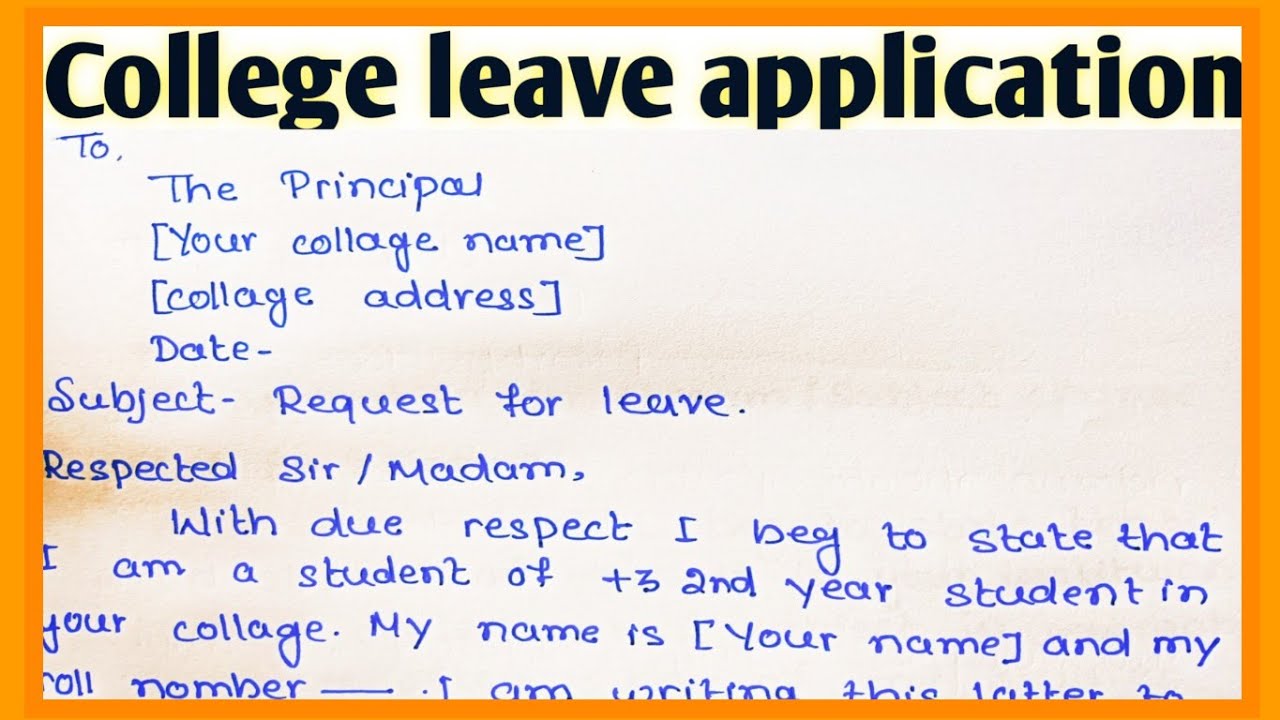 College leave application
To,
The Principal
[Your collage name]
[collage address]
Date-
Subject- Request for leave.
Respected Sir / Madam,
With due respect I beg to state that
I am a student of +3 2nd year student in
your collage. My name is [Your name] and my
roll nomber — . I am writing this latter to